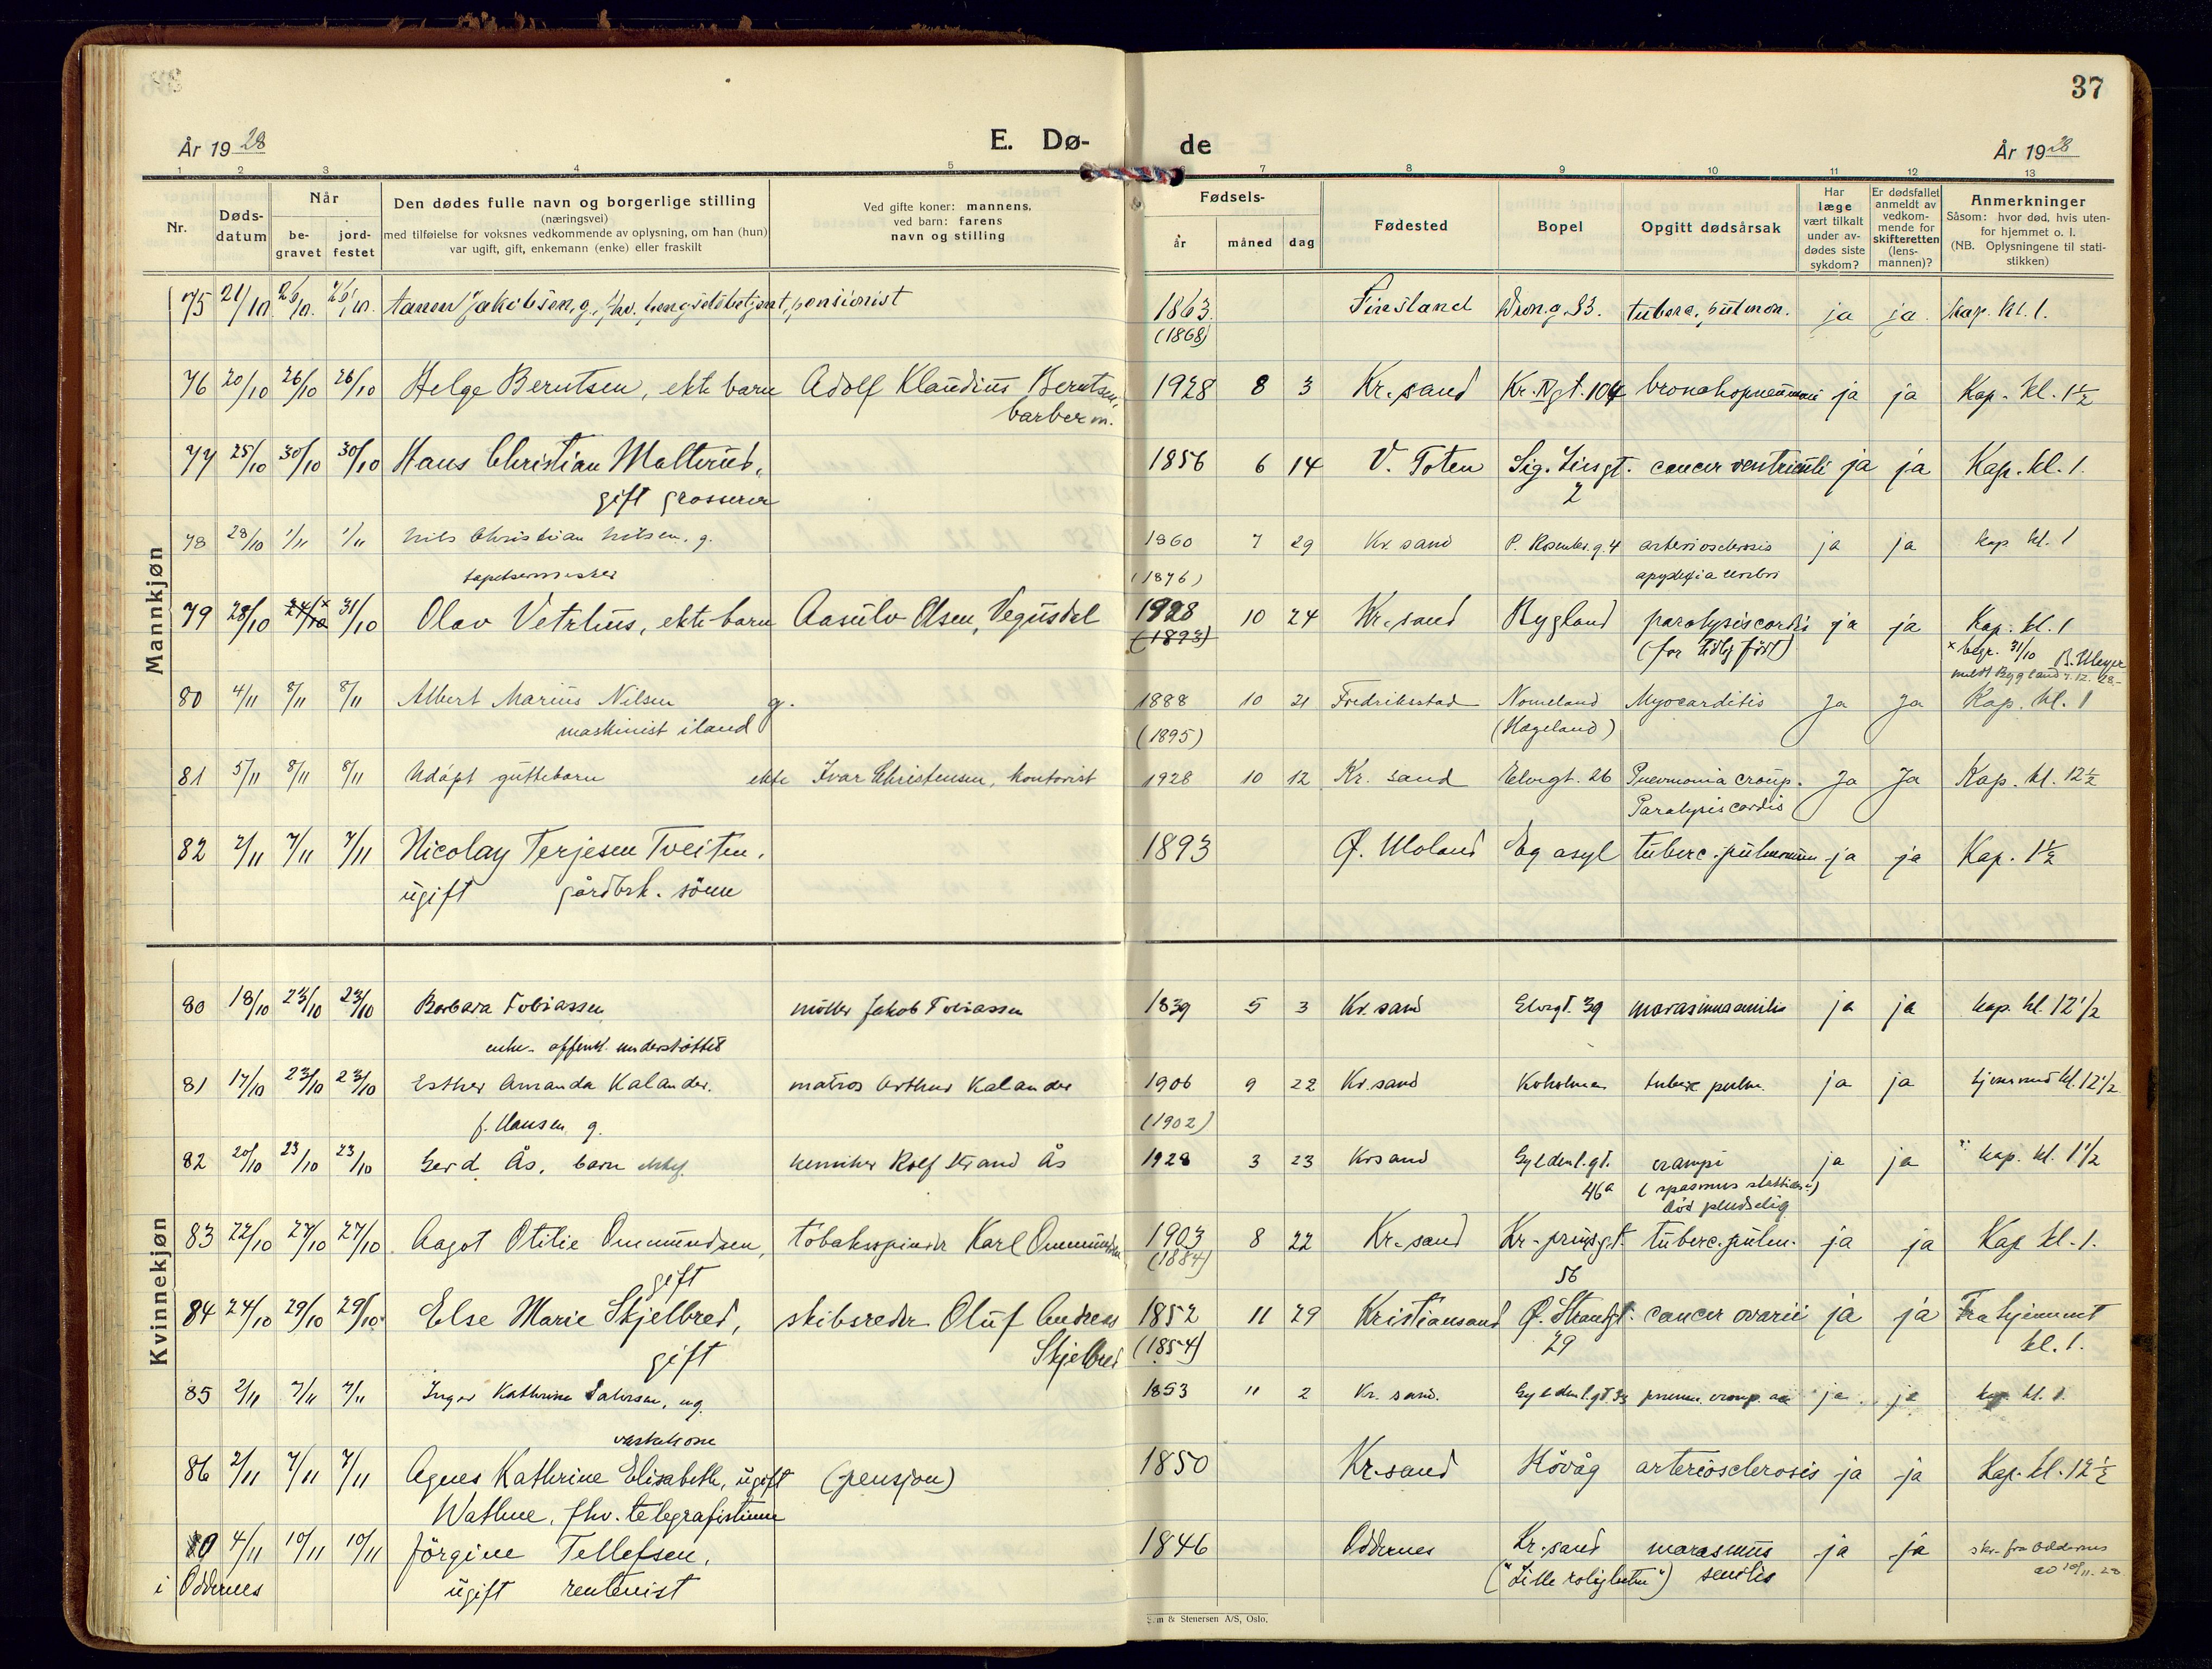 37
År 1928
E. Dø-
de
År 1928
1 2 3 4 5 6 7 8 9 10 11 12 13
Nr.
Døds-
datum
Når
be-
gravet
jord-
festet
Den dødes fulle navn og borgerlige stilling
(næringsvei)
med tilføielse for voksnes vedkommende av oplysning, om han (hun)
var ugift, gift, enkemann (enke) eller fraskilt
Ved gifte koner: mannens,
ved barn: farens
navn og stilling
Fødsels-
år måned dag
Fødested
Bopel
Opgitt dødsårsak
Har
læge
vært tilkalt
under av-
dødes siste
sykdom?
Er dødsfallet
anmeldt av
vedkom-
mende for
skifteretten
(lens-
mannen)?
Anmerkninger
Såsom: hvor død, hvis uten-
for hjemmet o. l.
(NB. Oplysningene til stati-
stikken)
Mannkjøn
75 21/10 26/10 26/10 Jakobsen, g., fhv. pensionist 1863 Finsland Dron.g. 83. tuberc. pulmon. ja ja Kap. kl. 1.
(1868)
76 20/10 26/10 26/10 Helge Berntsen, ekte barn Adolf Klaudius Berntsen, 1928 8 3 Kr.sand Kr. IV gt. 104 bronchopneumoni ja ja Kap. kl. 1½
barberm.
77 25/10 30/10 30/10 Hans Christian Malterud, 1856 6 14 V. Toten Sig. Liesgt. cancer ventriculi ja ja Kap. kl. 1.
gift grosserer 2
78 28/10 1/11 1/11 Nils Christian Nilsen, g. 1860 7 29 Kr. sand P. Rosenkr.g. 4 arteriosclerosis ja ja kap. kl. 1
tapetsermester (1876) apoplexia cerebri
79 28/10 31/10 Olav Vetrhus, ekte barn Aasulv Olsen, Vegusdal 1928 10 24 Kr.sand Bygland paralysis cordis ja ja Kap. kl. 1
(1893) (for tidlig født) × begr. 31/10
80 4/11 8/11 8/11 Albert Marius Nilsen g. 1888 10 21 Fredriksstad Nomeland Myocarditis Ja Ja Kap. kl. 1
maskinist iland (1895) (Hægeland)
81 5/11 8/11 8/11 Udøpt guttebarn ekte Ivar Christensen, kontorist 1928 10 12 Kr. sand Elvegt. 26 Pneumonia croup. Ja Ja Kap. kl. 12½
Paralysis cordis
82 2/11 7/11 7/11 Nicolay Terjesen Tveiten, 1893 Ø. Moland Eg asyl tuberc. pulmonum ja ja Kap. 1½
ugift gårdbrk. sønn
Kvinnekjøn
80 18/10 23/10 23/10 Barbara Tobiassen møller Jakob Tobiassen 1839 5 3 Kr. sand Elvegt. 39 marasmus senilis ja ja kap. kl. 12½
enke. offentl. understøttet
81 17/10 23/10 23/10 Esther Amanda Kalander. matros Arthur Kalander 1906 9 22 Kr. sand Koholmen tuberc pulm. ja ja kl. 12½
f. Hansen g. (1902)
82 20/10 23/10 23/10 Gerd Ås, barn kemiker Rolf Strand Ås 1928 3 23 Krsand Gyldenl.gt. crampi ja ja kap. kl. 1½
46a død pludselig
83 22/10 27/10 27/10 Aagot Otilie Ommundsen, tobaksspinder Karl Ommundsen 1903 8 22 Kr.sand Kr. prinsgt. tuberc. pulm. ja ja Kap kl. 1.
gift (1884) 56
84 24/10 29/10 29/10 Else Marie Skjelbred, skibsreder Oluf Andreas 1852 11 29 Kristiansand Ø. Strandgt. cancer ovarii ja ja Fra hjemmet
gift Skjelbred (1854) 29 kl. 1.
85 2/11 7/11 7/11 Inger Kathrine ug. 1853 11 2 Kr. sand. Gyldenl.gt. pneum. croup. ja ja kap. kl. 1
vaskekone
86 2/11 7/11 7/11 Agnes Kathrine Elisabeth, ugift (pensjon) 1850 Kr.sand Høvåg arteriosclerosis ja ja Kap. kl. 12½
Wathne, fhv. telegrafistinne
4/11 10/11 10/11 Jörgine Tellefsen, 1846 Oddernes Kr.sand marasmus ja ja skr. fra Oddernes
i Oddernes ugift rentenist ("Lille roligheten") senilis
Sem & Stenersen A/S, Oslo.